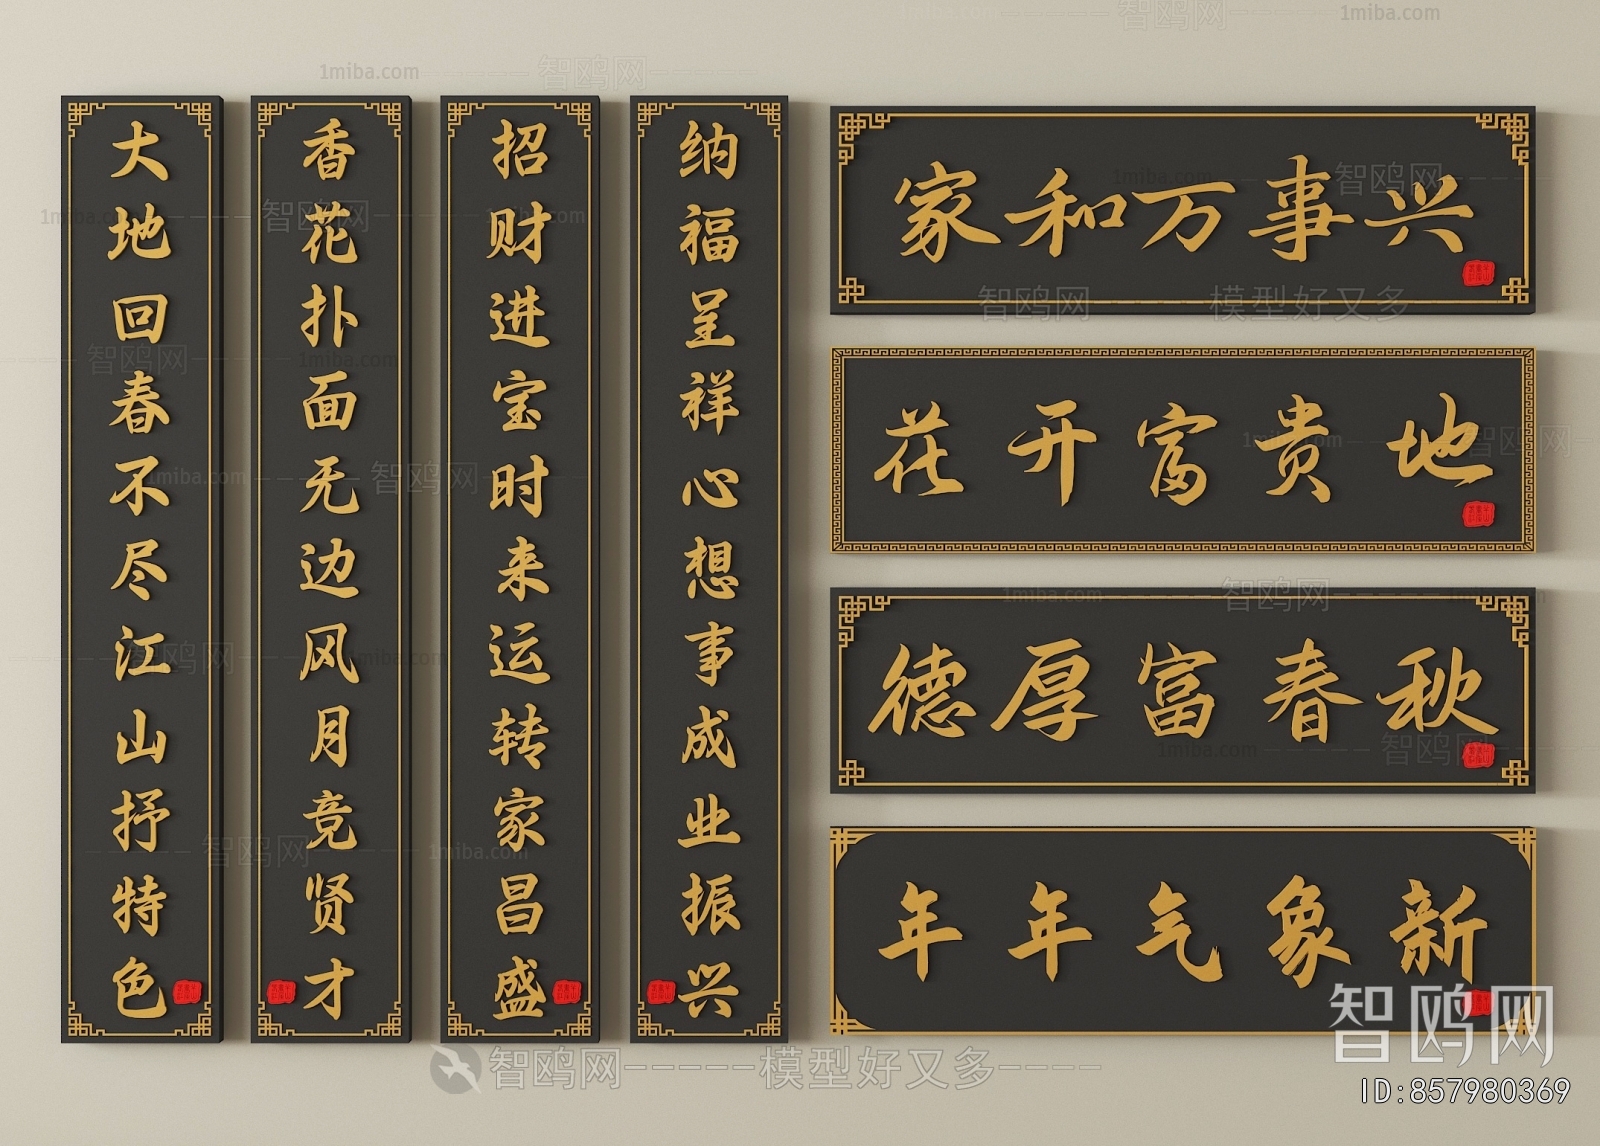 大地回春不尽江山抒特色
香花扑面无边风月竞贤才
招财进宝时来运转家昌盛
纳福呈祥心想事成业振兴
家和万事兴
花开富贵地
德厚富春秋
年年气象新
智鸥网
模型好又多
1miba.com
ID:857980369